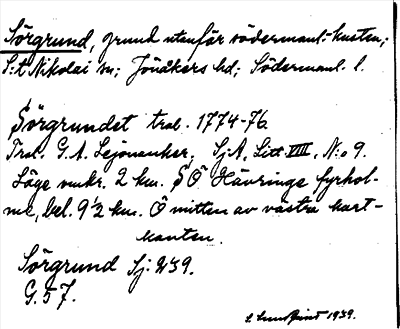 Sörgrund, grund utanför södermanl.-kusten;
S:t Nikolai sn; Jönåkers hd; Södermanl. l.
Sörgrundet trol. 1774-76.
Trol. G. A. Lejonanker, Sj.A, Litt VIII, N:o 9.
Läge omkr. 2 km. S Ö Hävringe fyrhol-
me, bel. 9½ km. Ö mitten av västra kart-
kanten.
Sörgrund Sj: 239.
G. 57.
1939.